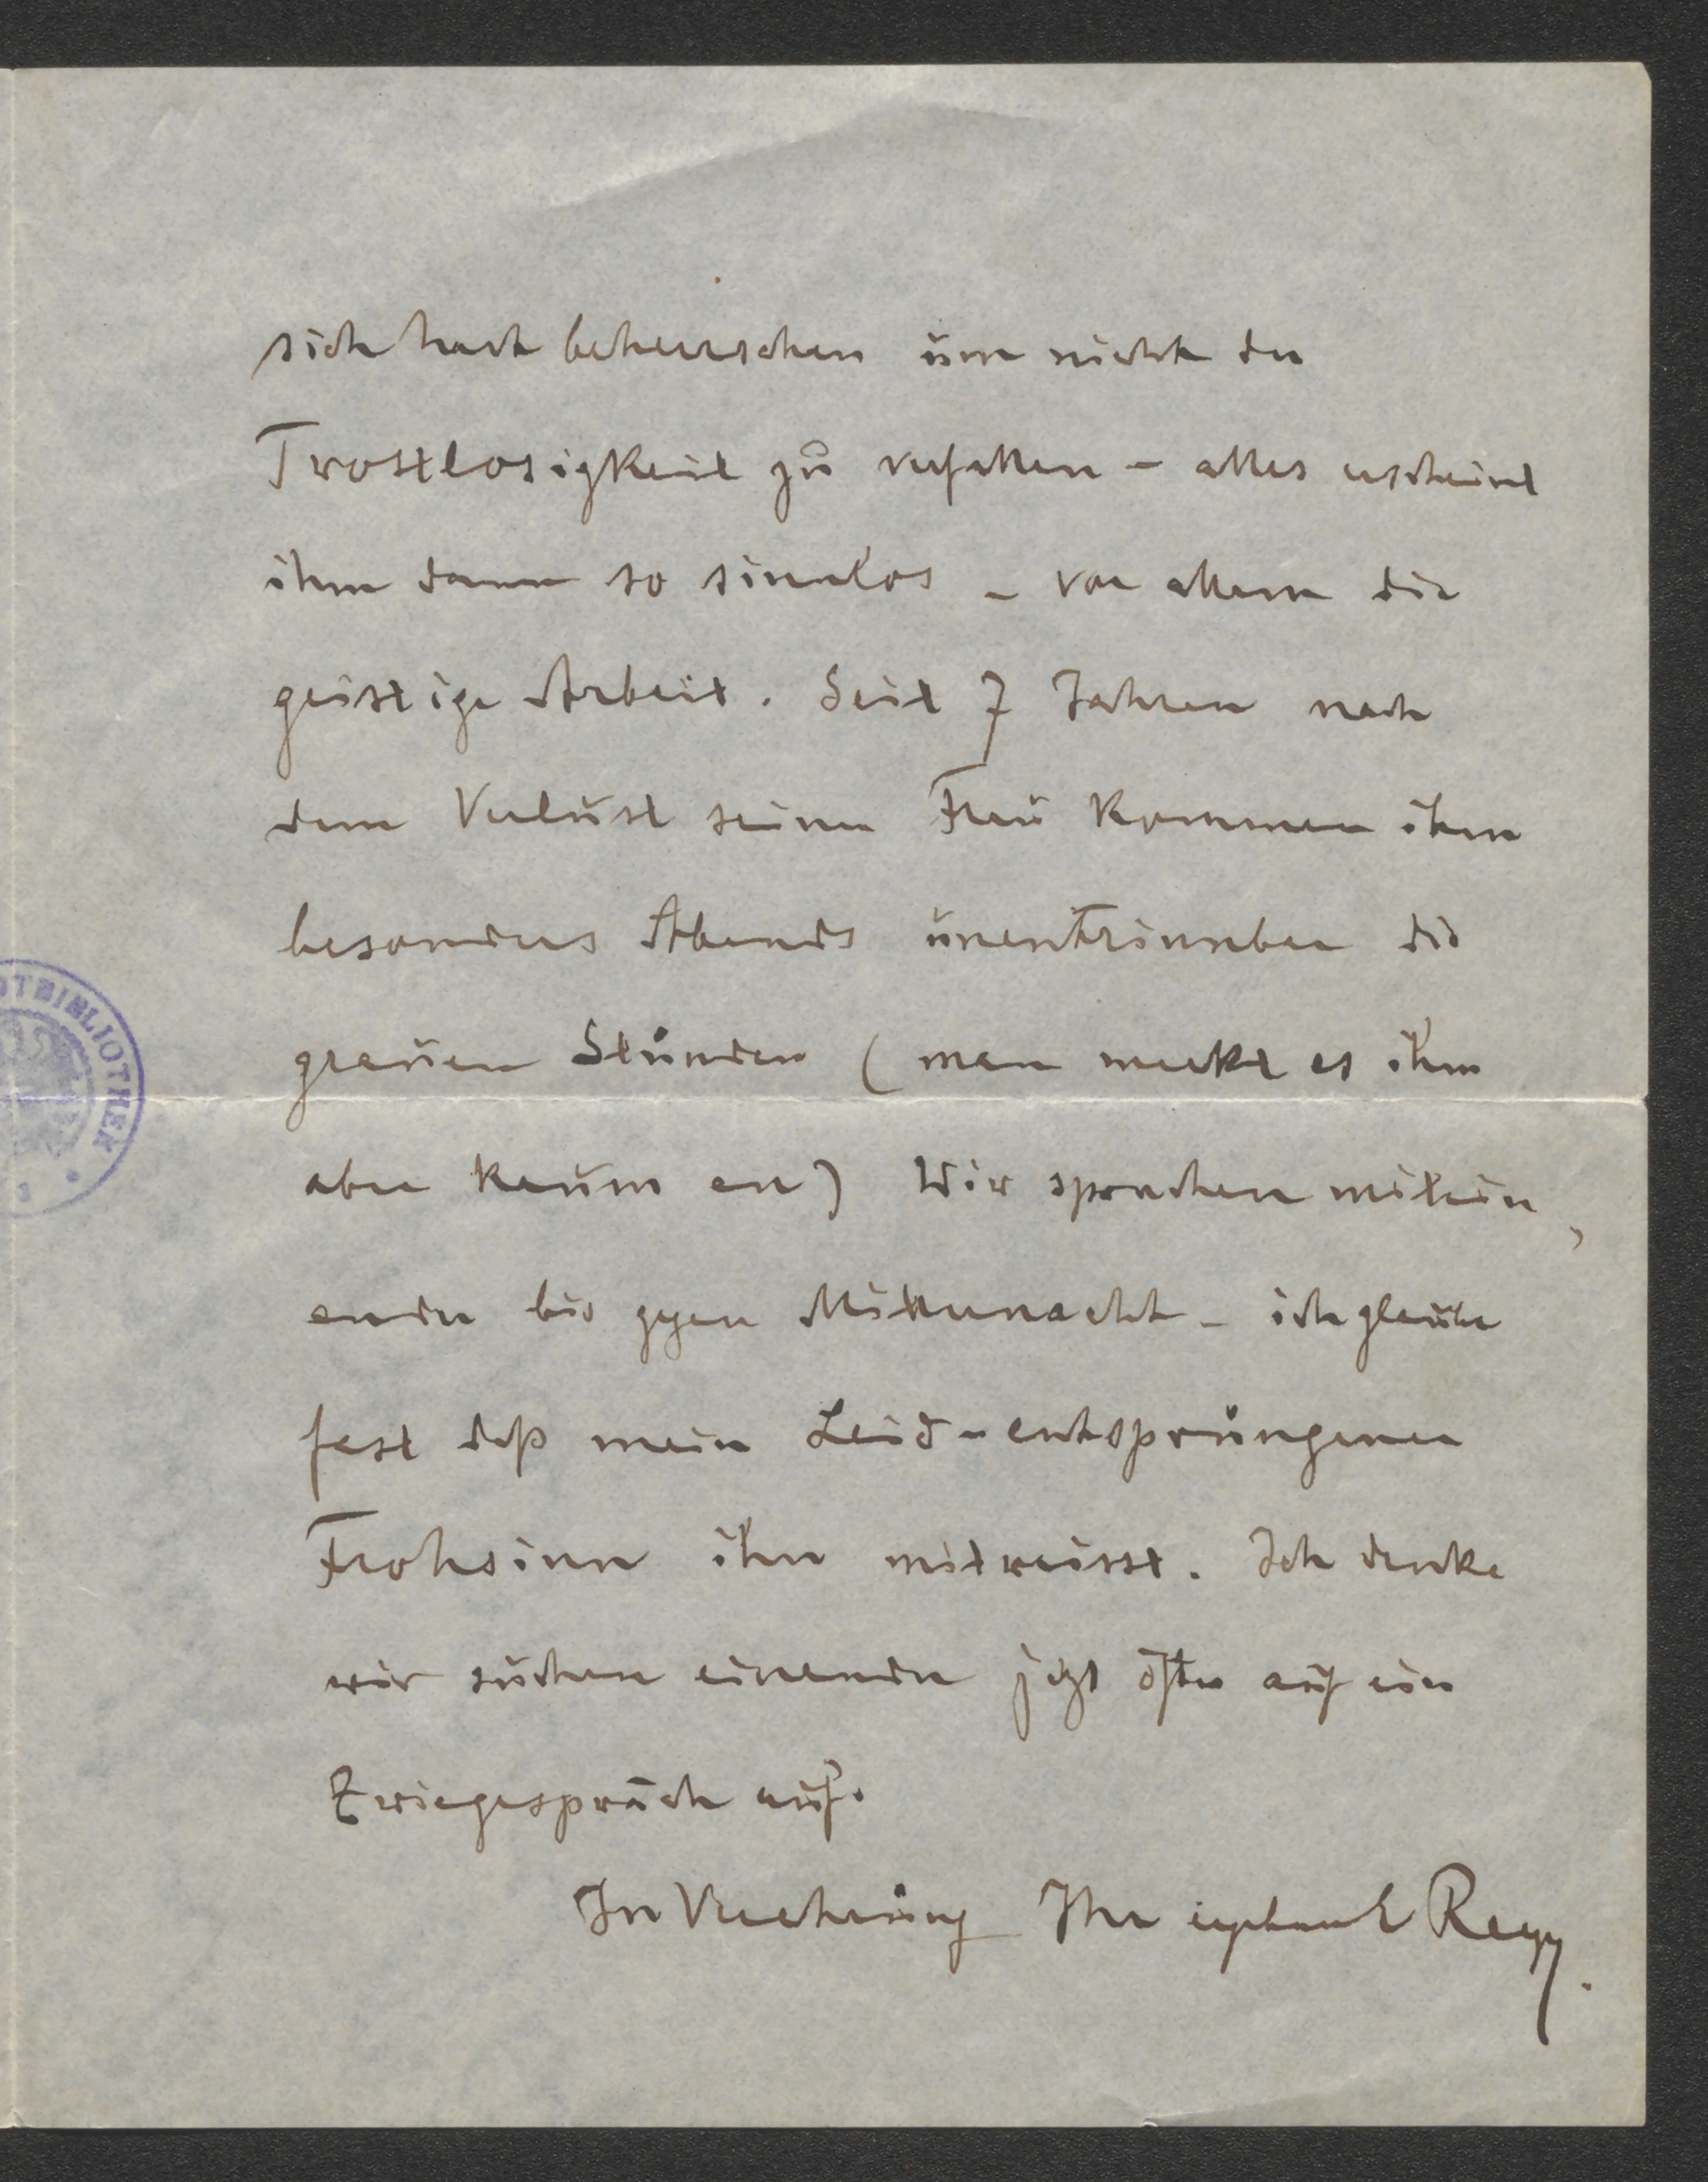 sich hart beherrschen um nicht der
Trostlosigkeit zu verfallen – alles erscheint
ihm dann so sinnlos – vor allem die
geistige Arbeit. Seit 7 Jahren nach
dem Verlust seiner Frau kommen ihm
besonders Abends unentrinnbar die
grauen Stunden (man merkt es ihm
aber kaum an) Wir sprachen mitein
ander bis gegen Mitternacht – ich glaube
fest daß mein Leid-entsprungener
Frohsinn ihn mitreisst. Ich denke
wir suchen einander jetzt öfter auf ein
Zwiegespräch auf.
In Verehrung Ihr
OTBIBLIOTHEK